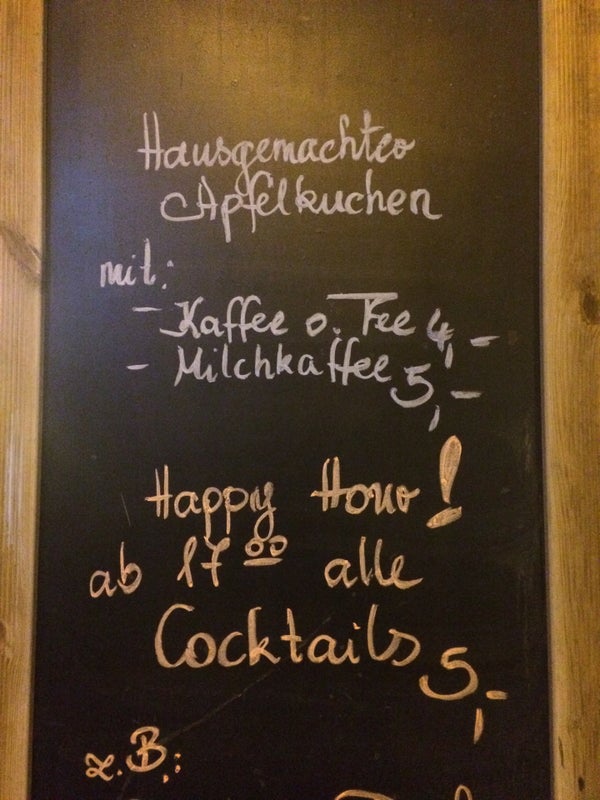 Hausgemachter
Apfelkuchen
mit:
- Kaffee o. Tee 4,-
- Milchkaffee 5,-
Happy Hour!
ab 17 00 alle
Cocktails 5,-
z.B.: